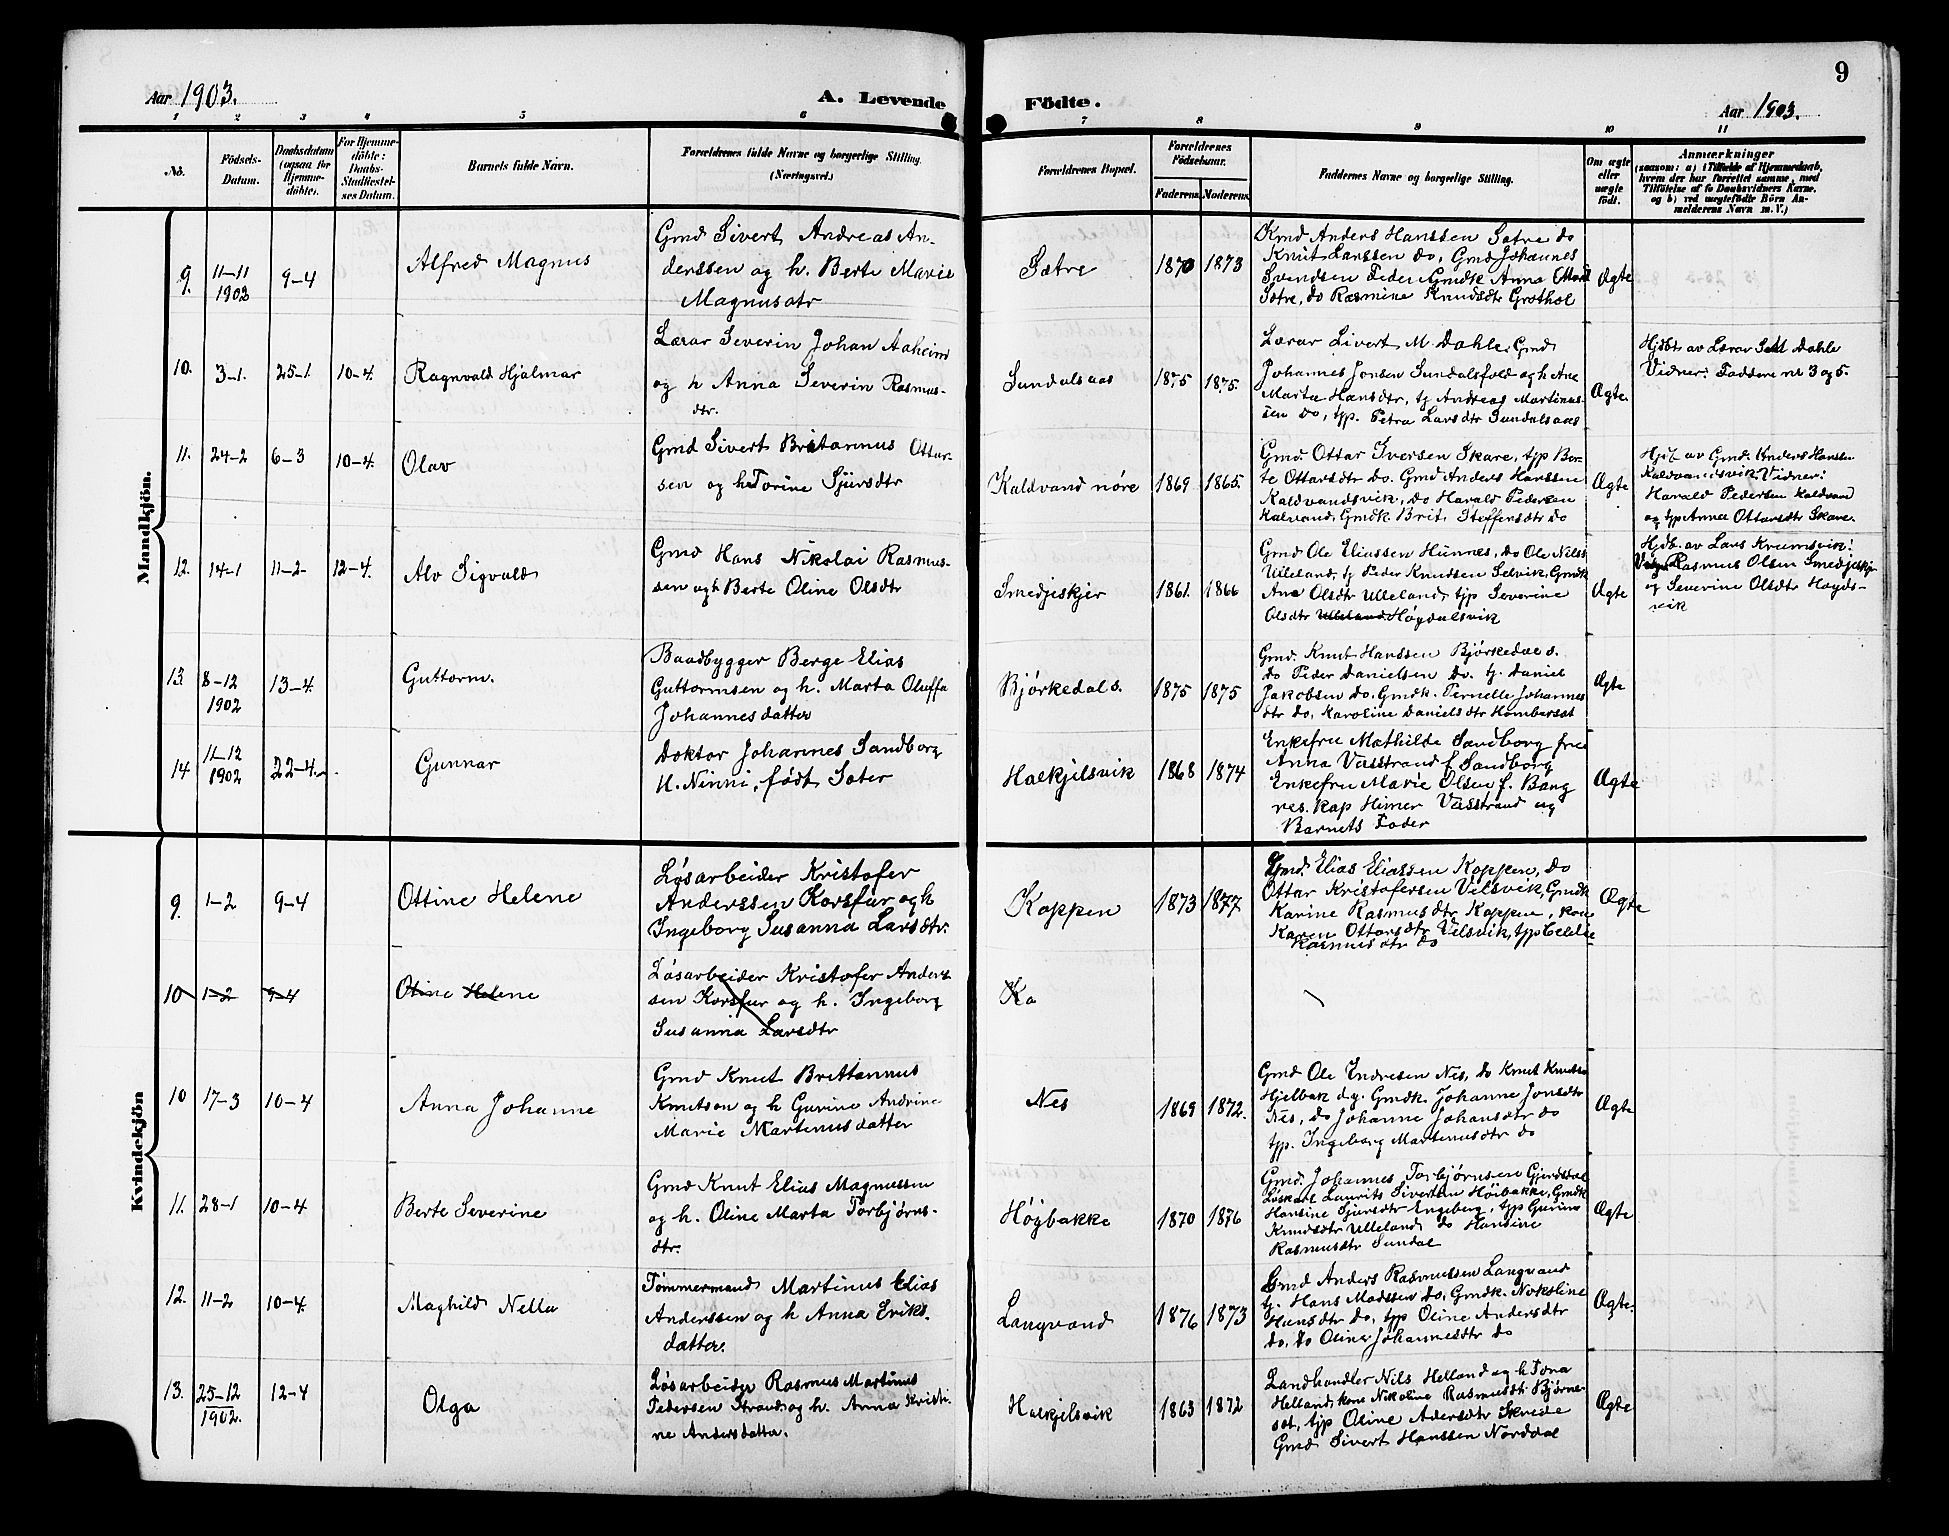 9
Aar 1903.
A. Levende
Fødte.
Aar 1903.
1 2 3 4 5 6 7 8 9 10 11
No.
Fødsels-
Datum.
Daabsdatum
(ogsaa for
Hjemme-
døbte).
For Hjemme-
døbte:
Daabs-
Stadfæstel-
ses Datum.
Barnets fulde Navn.
Forældrenes fulde Navne og borgerlige Stilling.
(Næringsvei.)
Forældrenes Bopæl.
Forældrenes
Fødselsaar.
Faderens. Moderens.
Faddernes Navne og borgerlige Stilling.
Om ægte
eller
uægte
født.
Anmærkninger
(saasom: a) i Tilfælde af Hjemmedaab,
hvem der har forrettet samme, med
Tilføielse af to Daabsvidners Navne,
og b) ved uægtefødte Børn An-
melderens Navn m. V.)
Mandkjøn.
9.
11-11
1902
9-4
Alfred Magnus
Gmd Sivert Andreas An-
derssen og h. Berte Marie
Magnusdtr
Sætre
1870 1873
Gmd Anders Hanssen Sætre do
Knut Larssen do, Gmd Johannes
Svendsen Feden Gmdk Anna
Sætre, do Rasmine Knudsdtr Grothol
Ægte
10.
3-1.
25-1
10-4.
Ragnvald Hjalmar
Lærar Severin Johan Aaheim
og h Anna Severin Rasmus-
dtr.
Sundalsaas
1875 1875.
Lærar Sivert M. Dahle, Gmd
Johannes Jonsen Sundalsfold og h Ane
Marta Hansdtr, tj Andreas Martinus-
sen do, tjp. Petra Larsdtr Sundalsaas
Ægte.
Hjdbt av Lærar S M Dahle
Vidner: Faddere nr 3 og 5.
11.
24-2
6-3
10-4.
Olav
Gmd Sivert Britanmus Ottar-
sen og h Torine Sjursdtr
Kaldvand nøre
1869 1865.
Gmd Ottar Iversen Skare, tjp Ber-
te Ottarsdtr do. Gmd Anders Hanssen
Kaldvandsvik, do Harald Pedersen
Kalvand, Gmdk. Brit. Steffensdtr do
Ægte
Hjdt av Gmd. Anders Hanssen
Kaldvandsvik. Vidner:
Harald Pedersen Kaldvand
og tjp Anna Ottarsdtr Skare.
12.
14-1
11-2.
12-4.
Alv Sigvald
Gmd Hans Nikolai Rasmus-
sen og h Berte Oline Olsdtr
Smedjeskjer
1861. 1866
Gmd Ole Eliassen Hunnes, do Ole Nilss
Ulleland, tj Peder Knudsen Selvik, Gmdk
Ane Olsdtr Ulleland, tjp Severine
Olsdtr Ulleland Høydalsvik
Ægte
Hjdb. av Lars Krumsvik:
Vidner Rasmus Olsen Smedjeskjer
og Severine Olsdtr Høyds-
vik
13.
8-12
1902
13-4.
Guttorm.
Baadbygger Berge Elias
Guttormsen og h. Marta Oluffa
Johannesdatter
Bjørkedals.
1875 1875
Gmd. Knut Hanssen Bjørkedal s.
do Peder Danielsen do. tj. Daniel
Jakobsen do. Gmdk. Pernelle Johannes
dtr do, Karoline Danielsdtr Homberset
Ægte
14
11-12
1902
22-4.
Gunnar
Doktor Johannes Sandborg
H. Ninni, født Sæter
Halkjelsvik
1868 1874
Enkefru Mathilde Sandborg frue
Anna Vasstrand f. Sandborg
Enkefru Marie Olsen f. Bang
res. kap Himer Vasstrand og
Barnets Fader
Ægte
Kvindekjøn
9.
1-2
9-4
Ottine Helene
Løsarbeider Kristofer
Anderssen Korsfur og h
Ingeborg Susanna Larsdtr.
Koppen
1873 1877
Gmd. Elias Eliassen Koppen, do
Ottar Kristofersen Vilsvik, Gmdk
Karine Rasmusdtr Koppen, kone
Karen Ottarsdtr Vilsvik, tjp
Rasmusdtr do
Ægte
10
1-2
9-4
Otine Helene
Løsarbeider Kristofer Anders
sen Korsfur og h. Ingeborg
Susanna Larsdtr
Ko
10
17-3
10-4
Anna Johanne
Gmd Knut Brittannus
Knutson og h Gurine Andrine
Marie Martinusdatter
Nes
1869 1872.
Gmd Ole Endresen Nes, do Knut Knutson
Hjelbak d.y. Gmdk. Johanne Jonsdtr
Nes, do Johanne Johansdtr do
tjp. Ingeborg Martinusdtr do
Ægte
11.
28-1
10-4
Berte Severine
Gmd Knut Elias Magnussen
og h. Oline Marta Torbjørns-
dtr.
Høgbakke
1870 1876
Gmd. Johannes Torbjørnsen Gjerdsdal
Løskarl Laurits Sivertsen Høibakke, Gmdk
Hansine Sjursdtr Engeberg, tjp Gurine
Knudsdtr Ulleland, do Hansine
Rasmusdtr Sundal
Ægte
12.
11-2
10-4.
Maghild Nella
Tømmermand Martinus Elias
Anderssen og h Anna Eriks.
datter.
Langvand
1876 1873
Gmd Anders Rasmussen Langvand
tj. Hans Madssen do, Gmdk. Nikoline
Hansdtr do, tjp Oline Andersdtr
do, do Oline Johannesdtr do
Ægte.
13.
25-12
1902.
12-4
Olga
Løsarbeider Rasmus Martinus
Pedersen Strand og h. Anna Kristi-
ne Andersdatter.
Halkjelsvik
1863 1872
Landhandler Nils Helland og h Tona
Helland, kone Nikoline Rasmusdt. Bjørne-
set, tjp Oline Adersdtr Skrede
Gmd Sivert Hanssen Norddal
Ægte